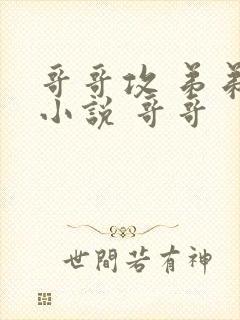 哥哥攻弟弟
小說 哥哥
世間若有神